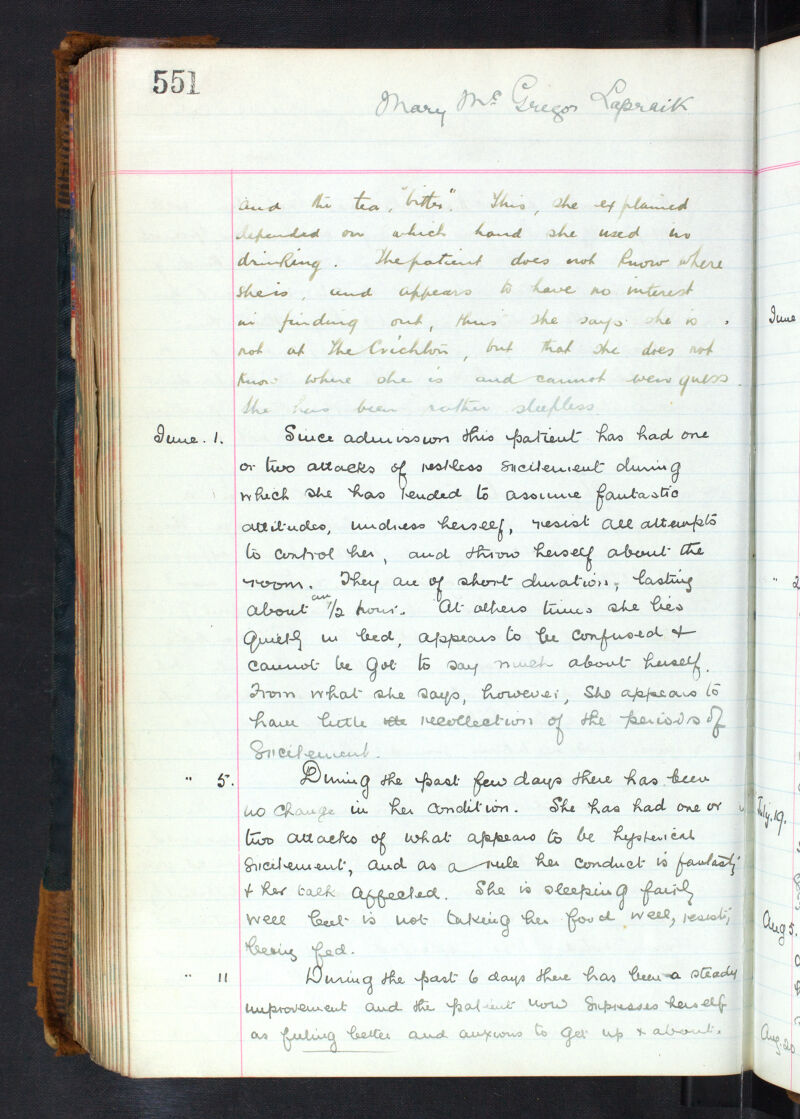 551
Mary Mc Gregor Lapraik
and the tea, "bitter". This, she explained
depended on which hand she used in
drinking. The patient does not know where
she is, and appears to have no interest
in finding out, thus she says she is
not at The Crichton, but that she does not
know where she is and cannot even guess.
She has been rather sleepless.
June. 1. Since admission this patient has had one
or two attacks of restless excitement during
which she has tended to assume fantastic
attitudes, undress herself, resist all attempts
to control her, and throw herself about the
room. They are of short duration, lasting
about an 1/2 hour. At others times she lies
quietly in bed, appears to be confused &
cannot be got to say much about herself.
From what she says, however, she appears to
have little recollection of the periods of
excitement.
" 5. During the past few days there has been
no change in her condition. She has had one or
two attacks of what appears to be hysterical
excitement, and as a rule her conduct is fantastic
& her talk affected. She is sleeping fairly
well but is not taking her food well, resists
being fed.
" 11 During the past 6 days there has been a steady
improvement and the patient now expresses herself
as feeling better and anxious to get up & about.
June
" 2
July. 19.
Aug 5.
Aug. 20